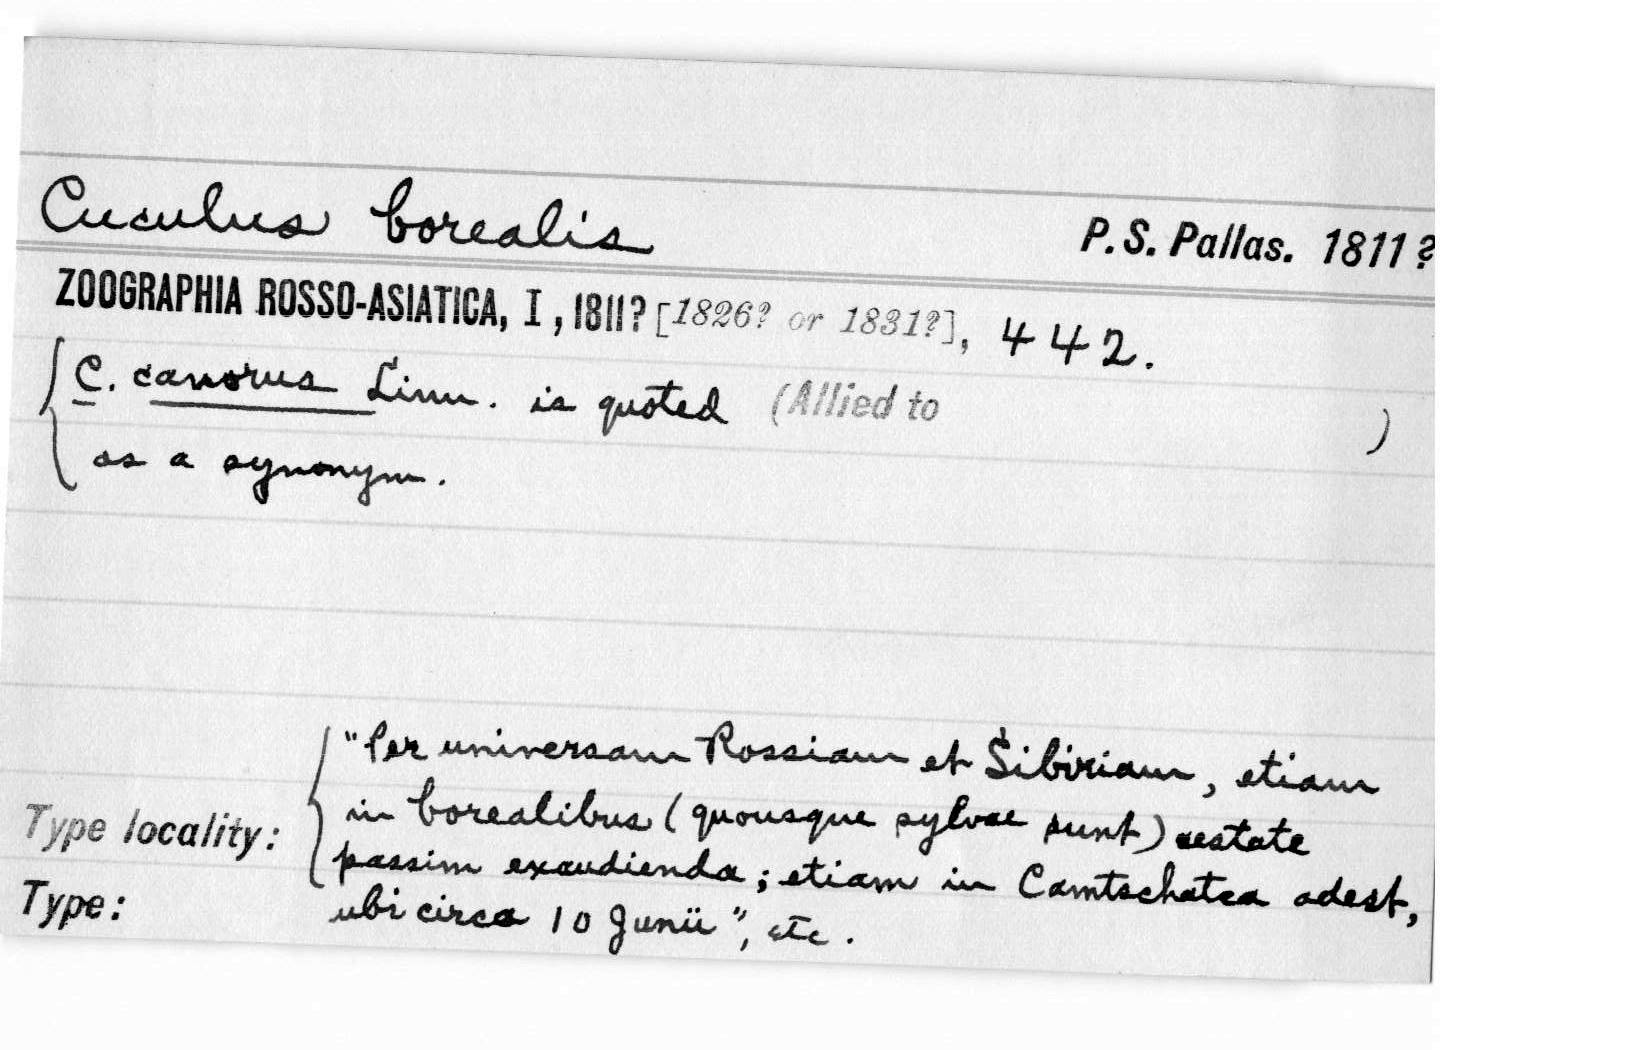 Cuculus borealis
P. S. Pallas. 1811?
ZOOGRAPHIA ROSSO-ASIATICA, I, 1811? [1826? or 1831?], 442.
C. canorus Linn. is quoted (Allied to )
as a synonym.
"Per universam Rossiam et Sibiriam, etiam
in borealibus (quousque sylvae sunt) aestate
Type locality: passim exaudienda; etiam in Camtschatca adest,
Type: ubi circa 10 Junii", etc.